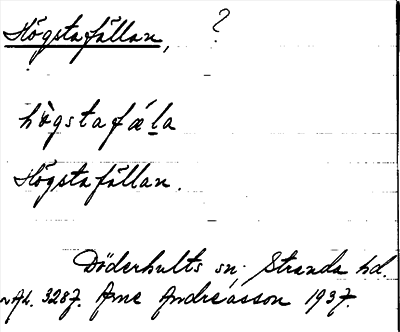 Högstafällan, ?
högstafäla
Högstafällan.
Döderhults sn. Stranda hd.
3287. Arne Andreasson 1937.